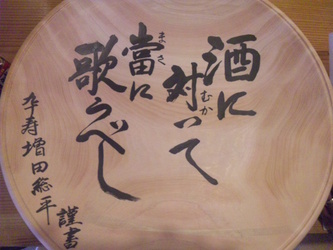 酒に
対って
むか
當に
まさ
歌うべし
卒寿増田総平
謹書